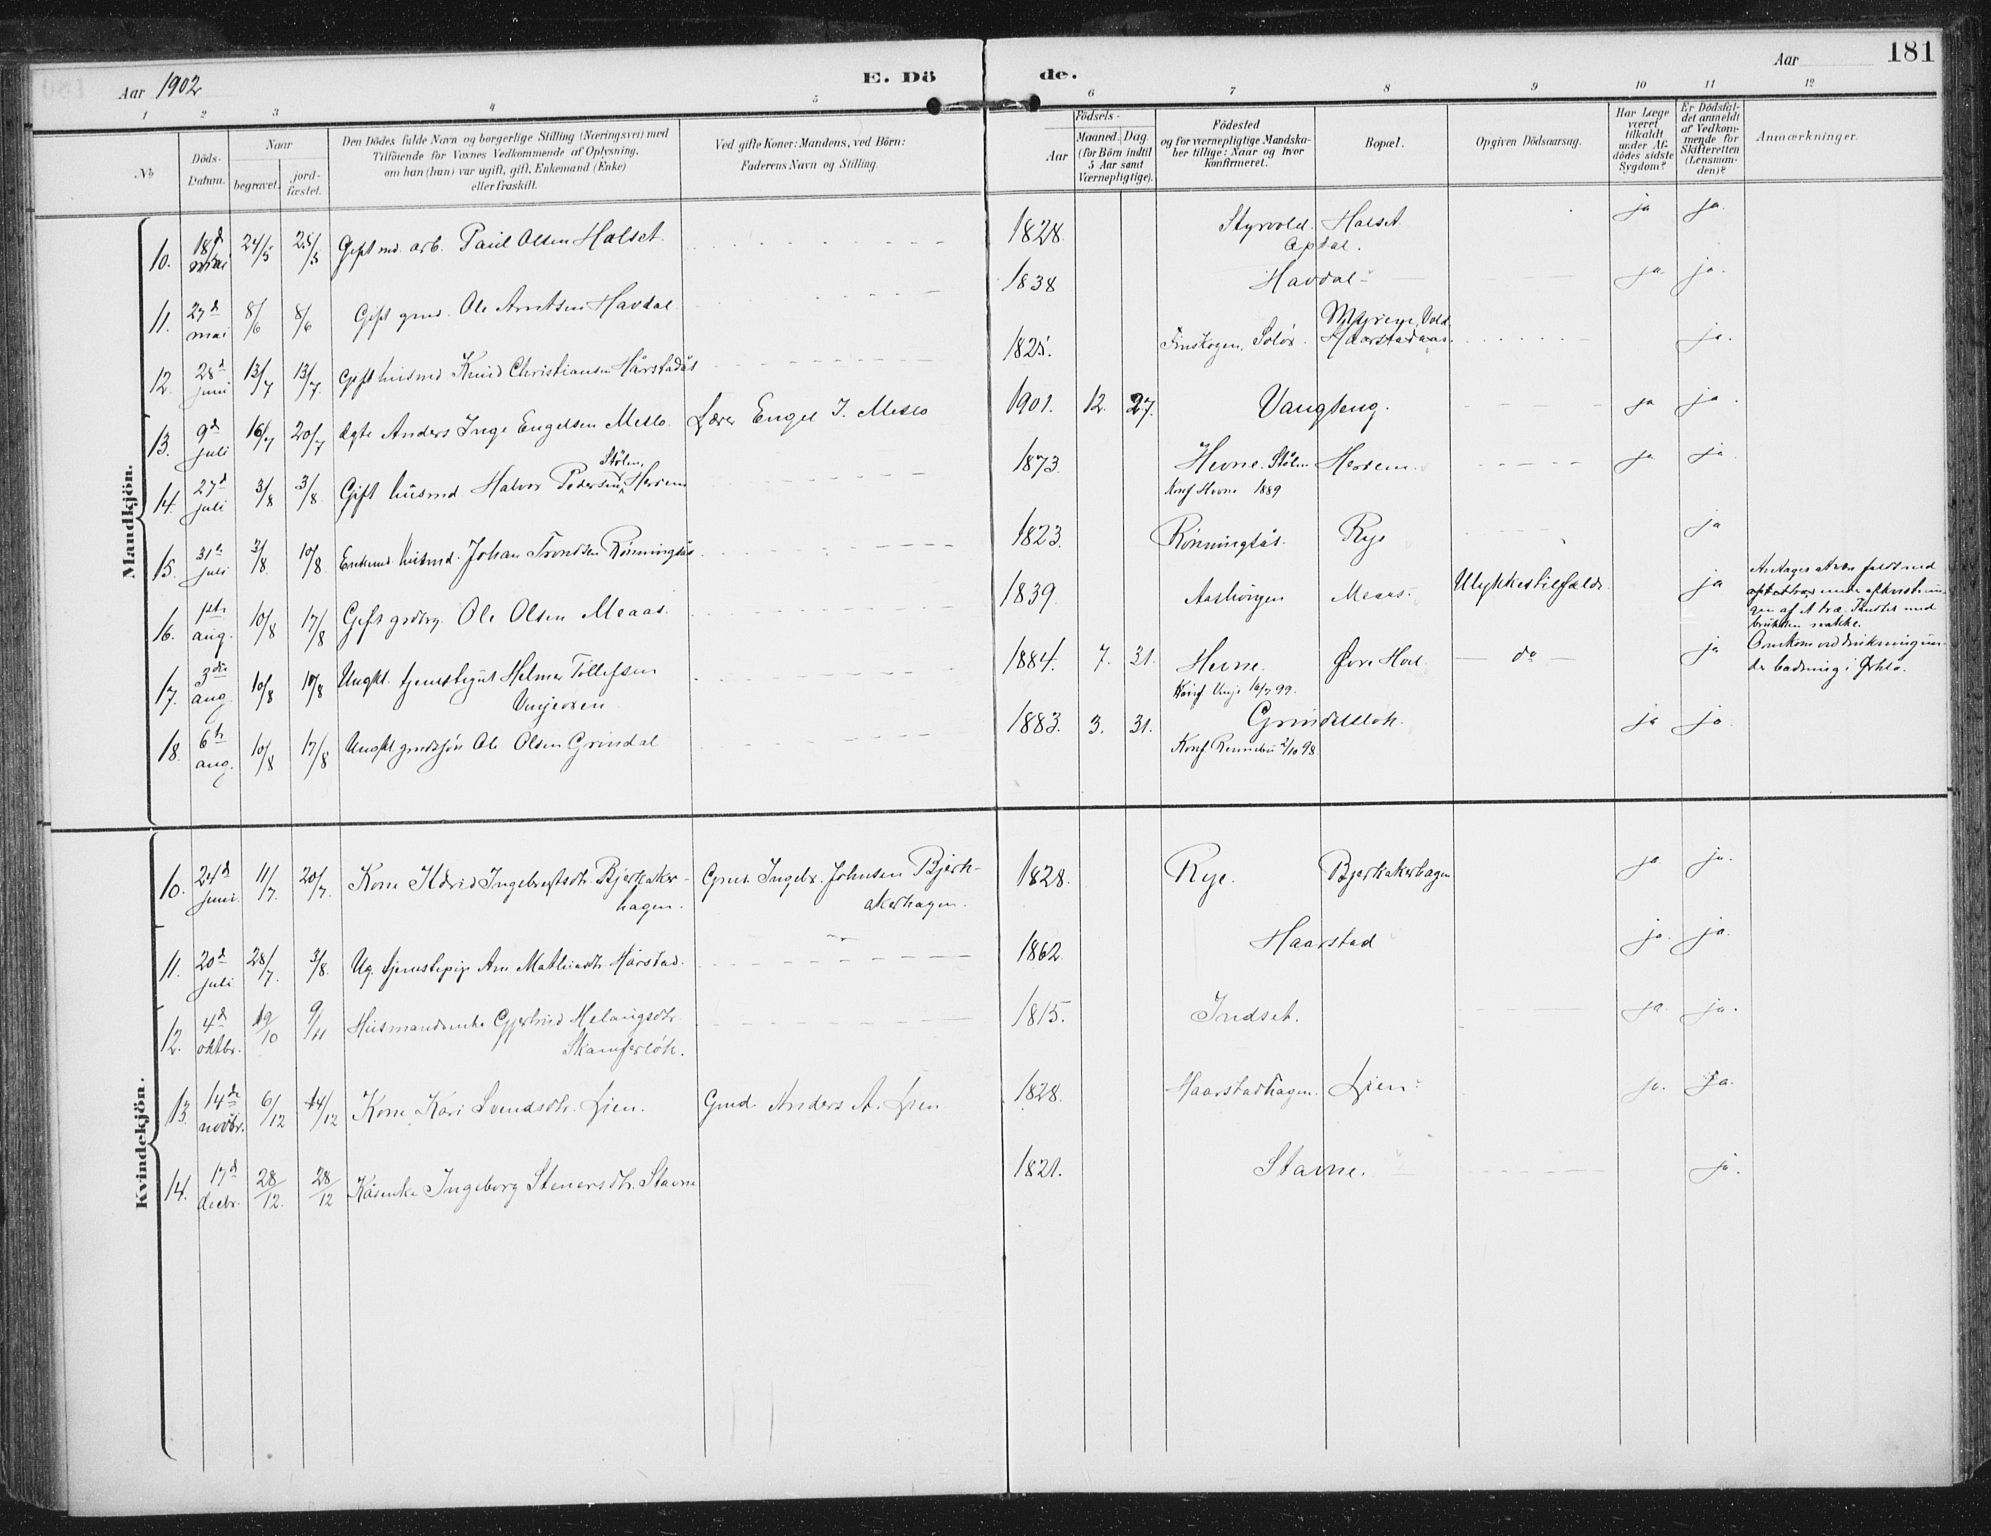 Aar 1902
E. Dö de.
Aar
181
1 2 3 4 5 6 7 8 9 10 11 12
No
Döds-Datum.
Naar
begravet.
jord-fæstet.
Den Dödes fulde Navn og borgerlige Stilling (Næringsvei) med
Tilföiende for Voxnes Vedkommende af Oplysning,
om han (hun) var ugift, gift, Enkemand (Enke)
eller fraskilt.
Ved gifte Koner: Mandens, ved Börn:
Faderens Navn og Stilling.
Födsels-
Aar
Maaned. Dag.
(for Börn indtil
5 Aar samt
Værnepligtige).
Födested
og for værnepligtige Mandska-
ber tillige: Naar og hvor
konfirmeret.
Bopæl.
Opgiven Dödsaarsag.
Har Læge
været
tilkaldt
under Af-
dödes sidste
Sygdom?
Er Dödsfal-
det anmeldt
af Vedkom-
mende for
Skifteretten
(Lensman-
den)?
Anmærkninger.
Mandkjön.
10. 18d mai 24/5 25/5 Gift md. arb. Paul Olsen Halset 1828. Styrvold Opdal. Halset ja ja.
11. 27d mai 8/6 8/6 Gift gmd. Ole Arntsen Havdal 1838 Havdal ja. ja.
12. 28d juni 13/7 13/7 Gift husmd Knud Christiansen Hårstadås 1825. Finskogen, Solør. Vold Haarstadaas. ja.
13. 9d juli 16/7 20/7 Ægte Anders Inge Engelsen Meslo Lærer Engel J. Meslo 1901. 12. 27. Vangseng. ja ja.
14. 27d juli 3/8 3/8. Gift husmd Halvor Pedersen Stølen, Herrem 1873. Hevne. Stølen Konf Hevne 1889 Herrem. ja ja.
15. 31te juli 3/8. 10/8. Enkemd. husmd. Johan Trondsen Rønningsås 1823. Rønningsås. Rye ja
16. 1ste aug. 10/8 17/8 Gift grdbr. Ole Olsen Meaas. 1839. Meaas. Ulykkestilfælde. ja Antages at være faldt ned
brukken nakke.
17. 3die aug 10/8 10/8 Ungkl. tjenestegut Helmer Tollefsen
Vinjeøren 1884. 7. 31. Hevne. Konf Vinje 16/7 99. Øvre Hoel do ja Omkom ved drukning un-
der badning i Orkla.
18. 6te aug. 10/8 17/8 Ungkl grdsøn Ole Olsen Grindal 1883. 3. 31. Grindalslok. Konf. Rennebu 2/10 98. ja ja
Kvindekjön.
10. 24d juni. 11/7. 20/7. Kone Ildrid Ingebrigtsdtr. Bjerkaker-
hagen. Gmd. Ingebr. Johnsen Bjerk-
akerhagen. 1828. Rye. Bjerkakerhagen ja ja.
11. 20d juli 28/7. 3/8. Ug. tjenestepige Ane Mathiasdtr Hårstad. 1862. Haarstad ja. ja.
12. 4d oktbr. 19/10 9/11 Husmandsenke Gjertrud Helaugsdtr.
Skamferløk. 1815. Indset. ja. ja.
13. 14de novbr. 6/12 14/12 Kone Kari Svendsdtr. Lien. Gmd. Anders A. Lien 1828. Haarstadhagen. Lien. ja. ja.
14. 17d decbr. 28/12. 28/12 Kårenke Ingeborg Stenersdtr. Stavne 1821. Stavne. ja.